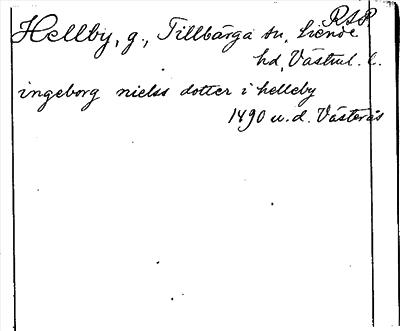 RSP.
Hellby, g., Tillbärga sn. Siende
hd, Västml. l.
ingeborg nielss dotter i helleby
1490 u.d. Västerås